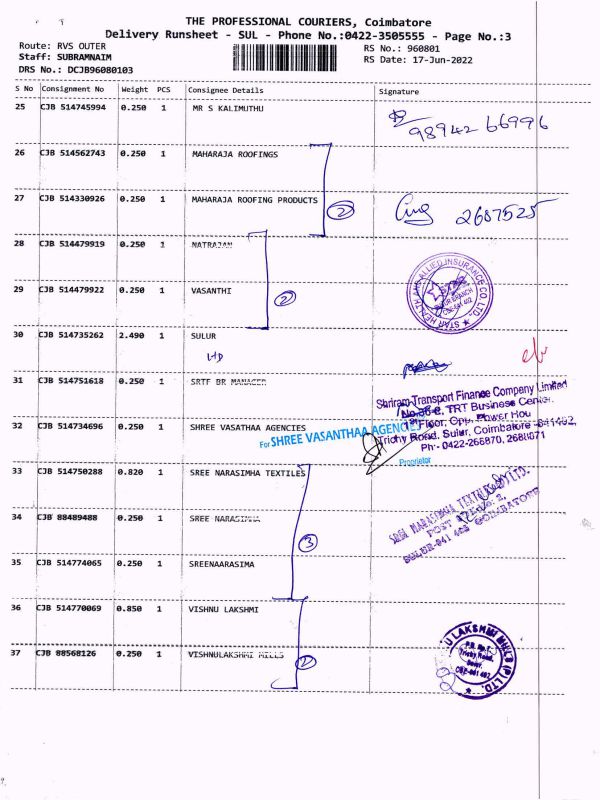 THE PROFESSIONAL COURIERS, Coimbatore
Delivery Runsheet - SUL - Phone No.:0422-3505555 - Page No.:3
Route: RVS OUTER
RS No.: 960801
Staff: SUBRAMNAIM
RS Date: 17-Jun-2022
DRS No.: DCJB96080103
S No Consignment No Weight PCS Consignee Details Signature
25 CJB 514745994 0.250 1 MR S KALIMUTHU
98942 66996
26 CJB 514562743 0.250 1 MAHARAJA ROOFINGS
27 CJB 514330926 0.250 1 MAHARAJA ROOFING PRODUCTS
2 2687525
28 CJB 514479919 0.250 1 NATRAJAN
29 CJB 514479922 0.250 1 VASANTHI
2
STAR HEALTH AND ALLIED INSURANCE CO. LTD.
30 CJB 514735262 2.490 1 SULUR
HD
31 CJB 514751618 0.250 1 SRTF BR MANAGER
Shriram Transport Finance Company Limited
TRT Business Center,
1st Floor, Opp. Power Hou
32 CJB 514734696 0.250 1 SHREE VASATHAA AGENCIES
For SHREE VASANTHAA AGENCIES
Trichy Road, Sulur, Coimbatore -641402,
Ph:- 0422-266870, 2680671
Proprietor
33 CJB 514750288 0.820 1 SREE NARASIMHA TEXTILES
SREE NARASIMHA TEXTILES
34 CJB 88489488 0.250 1 SREE NARASIMHA
3
SULUR-641 402 COIMBATORE
35 CJB 514774065 0.250 1 SREENAARASIMA
36 CJB 514770069 0.850 1 VISHNU LAKSHMI
37 CJB 88568126 0.250 1 VISHNULAKSHMI MILLS
2
U LAKSHMI MILLS (P) LTD.
Trichy Road,
Sulur,
CBE-641 402